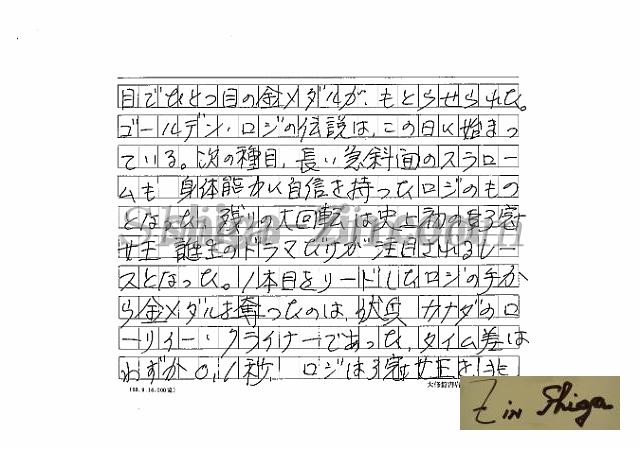 目でひとつ目の金メダルが、もとらせられた。
ゴールデン・ロジの伝説は、この日に始まっ
ている。次の種目、長い急斜面のスラロー
ムも 身体能力に自信を持ったロジのもの
となった。残りの大回転は史上初の3冠
女王誕生のドラマだけが注目されるレー
スとなった。1本目をリードしたロジの手か
ら金メダルを奪ったのは、伏兵 カナダのロ
ーリイー・クライナーであった。タイム差は
わずか0,1秒! ロジは3冠女王を
Shiga Zin
(88.9.16,000
大修館書店
Z in Shiga